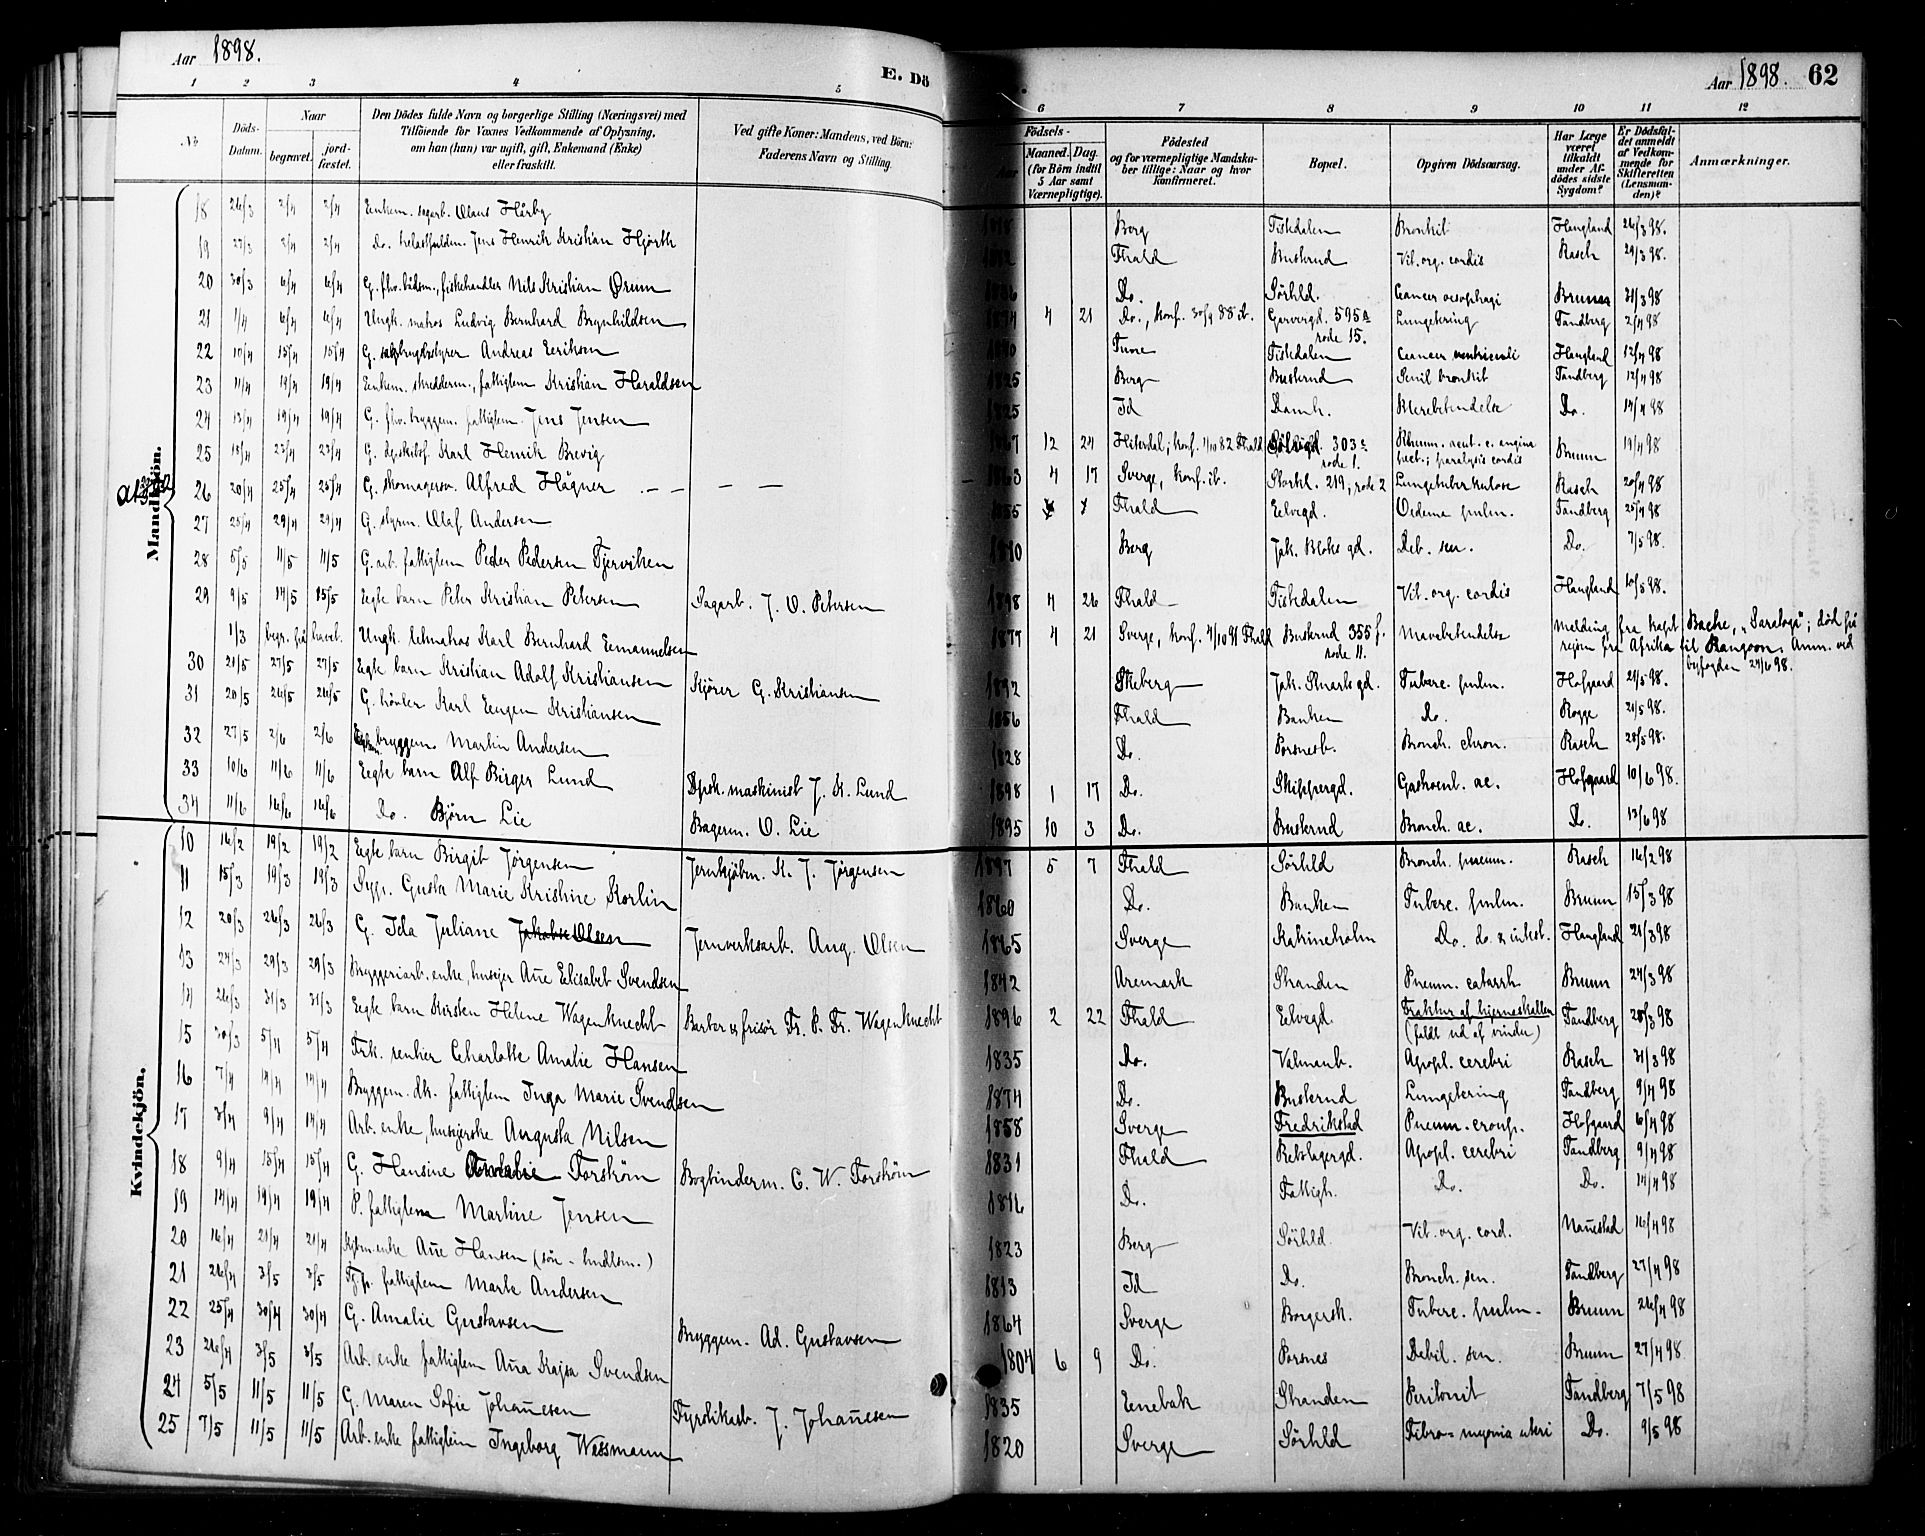 Aar 1898.
E. Dö
Aar 1898. 62
1 2 3 4 5 6 7 8 9 10 11 12
No. Döds-Datum. Naar begravet. jord-fæstet. Den Dödes fulde Navn og borgerlige Stilling (Næringsvei) med Tilföiende for Voxnes Vedkommende af Oplysning, om han (hun) var ugift, gift, Enkemand (Enke) eller fraskilt. Ved gifte Koner: Mandens, ved Börn: Faderens Navn og Stilling. Födsels- Aar Maaned. Dag. (for Börn indtil 5 Aar samt Værnepligtige). Födested og for værnepligtige Mandska-ber tillige: Naar og hvor konfirmeret. Bopæl. Opgiven Dödsaarsag. Har Læge været tilkaldt under Af-dödes sidste Sygdom? Er Dödsfal-det anmeldt af Vedkom-mende for Skifteretten (Lensman-den)? Anmærkninger.
Mandkjön.
18 26/3 2/4 2/4 Enkem. sagarb. Olaus Hårby Berg Tistedalen Bronkit Haugland 26/3 98.
19 27/3 2/4 2/4 Do. Jens Henrik Kristian Hjorth Fhald Buskrud Vit. org. cordis Rasch 29/3 98.
20 30/3 6/4 6/4 G. fhv. bådsm., fiskehandler Nils Kristian Ørum 1836 Do. Sörhld. Cancer oesophagi Bruun 31/3 98
21 1/4 6/4 6/4 Ungk. matros Ludvig Bernhard Brynhildsen 1874 4 21 Do., konf. 30/9 88 ib. Garvergd. 595a rode 15. Lungetæring Tandberg 2/4 98
22 10/4 15/4 15/4 G. Andreas Eriksen Tune Tistedalen Cancer ventriculi Haugland 12/4 98
23 11/4 19/4 19/4 Enkem. skrædderm., fattiglem Kristian Haraldsen 1825 Berg Buskrud Senil bronkit Tandberg 12/4 98
24 13/4 19/4 19/4 G. fhv. bryggem. fattiglem Jens Jensen 1825 Id Damh. Blærebetændelse Do. 14/4 98
25 18/4 23/4 23/4 G. Karl Henrik Brevig 1867 12 24 Hiterdal; konf. 1/10 82 Fhald 303a rode 1. Rheum. acut. c. angina pect.; paralysis cordis Bruun 19/4 98
26 20/4 25/4 25/4 G. skomagersv. Alfred Högner 1863 4 17 Sverge, konf. ib. Storkl. 219, rode 2 Lungetuberkulose Rasch 20/4 98
27 25/4 29/4 29/4 G. styrm. Olaf Andersen 1855 7 Fhald Elvegd. Oedema pulm. Tandberg 25/4 98
28 5/5 11/5 11/5 G. arb. fattiglem Peder Pedersen Tjerviken 1810 Berg Jak. Bloks gd. Deb. sen. Do. 7/5 98.
29 9/5 14/5 15/5 Egte barn Peter Kristian Petersen Sagarb. J. O. Petersen 1898 4 26 Fhald Tistedalen Vit. org. cordis Haugland 10/5 98.
1/3 begr. på havet. Ungk. letmatros Karl Bernhard Emanuelsen 1877 4 21 Sverge, konf. 4/10 91 Fhald Buskrud 355 f. rode 11. Mavebetændelse Melding fra kapt. Bache, "Saratoga"; död på rejsen fra Afrika til Rangoon. Anm. ved byfogden 24/6 98.
30 21/5 27/5 27/5 Egte barn Kristian Adolf Kristiansen Kjörer G. Kristiansen 1892 Skeberg Jak. Starks gd. Tuberc. pulm. Hofgaard 21/5 98.
31 20/5 26/5 26/5 G. höker Karl Eugen Kristiansen 1856 Fhald Banken Do. Rogge 21/5 98.
32 27/5 2/6 2/6 bryggem. Martin Andersen 1828 Do. Porsnesb. Bronch. chron. Rasch 28/5 98.
33 10/6 11/6 11/6 Egte barn Alf Birger Lund Dpsk. maskinist J. K. Lund 1898 1 17 Do. Skippergd. Gastroent. ac. Hofgaard 10/6 98.
34 11/6 16/6 16/6 Do. Björn Lie Bagerm. O. Lie 1895 10 3 Do. Buskrud Bronch. ac. Do. 13/6 98
Kvindekjön.
10 16/2 19/2 19/2 Egte barn Birgit Jörgensen Jernkjöbm. K. J. Jörgensen 1897 5 7 Fhald Sörhld Bronch. pneum. Rasch 16/2 98
11 15/3 19/3 19/3 Sypi. Gusta Marie Kristine Korlin 1860 Do. Banken Tuberc. pulm. Bruun 15/3 98
12 20/3 26/3 26/3 G. Ida Juliane Olsen Jernverksarb. Aug. Olsen 1865 Sverge Katrineholm Do. do. & intest. Haugland 21/3 98
13 24/3 29/3 29/3 Bryggeriarb. enke, husejer Ane Elisabet Svendsen 1842 Aremark Stranden Pneum. catarrh. Bruun 24/3 98
14 26/3 31/3 31/3 Egte barn Kirsten Helene Wagenknecht Barber & frisör Fr. P. Fr. Wagenknecht 1896 2 22 Fhald Elvegd. Fraktur af hjerneskallen (faldt ud af vindu) Tandberg 28/3 98
15 30/3 5/4 5/4 Frk. rentier Charlotte Amalie Hansen 1835 Do. Valmanb. Apopl. cerebri Rasch 31/3 98
16 7/4 14/4 14/4 Bryggem. dtr. fattiglem Inga Marie Svendsen 1874 Do. Buskrud Lungetæring Tandberg 9/4 98
17 3/4 9/4 14/4 Arb. enke, husejerske Augusta Nilsen 1858 Sverge Fredrikstad Pneum. croup. Hofgaard 6/4 98
18 9/4 15/4 15/4 G. Hansine Amalie Forström Bogbinderm. C. W. Forström 1831 Fhald Rebslagergd. Apopl. cerebri Tandberg 9/4 98
19 14/4 19/4 19/4 P. fattiglem Martine Jensen 1816 Do. Fattigh. Do. Do. 14/4 98
20 16/4 21/4 21/4 Kjöbm. enke Ane Hansen 1823 Berg Sörhld. Vit. org. cord. Nannestad 16/4 98
21 26/4 3/5 3/5 Tjp. fattiglem Marte Andersen 1813 Id Do. Bronch. sen. Tandberg 27/4 98
22 25/4 30/4 30/4 G. Amalie Gustavsen Bryggem. Ad. Gustavsen 1864 Sverge Borgersk. Tuberc. pulm. Bruun 26/4 98
23 26/4 3/5 3/5 Arb. enke fattiglem Ana Kajsa Svendsen 1804 6 9 Do. Porsnes Debil. sen. Bruun 27/4 98
24 5/5 11/5 11/5 G. Maren Sofie Johannesen Fyrstikarb. J. Johannesen 1835 Enebak Stranden Peritonit Tandberg 7/5 98
25 7/5 11/5 11/5 Arb. enke fattiglem Ingeborg Wessmann 1820 Sverge Sörhld Fibro-myoma uteri Do. 9/5 98